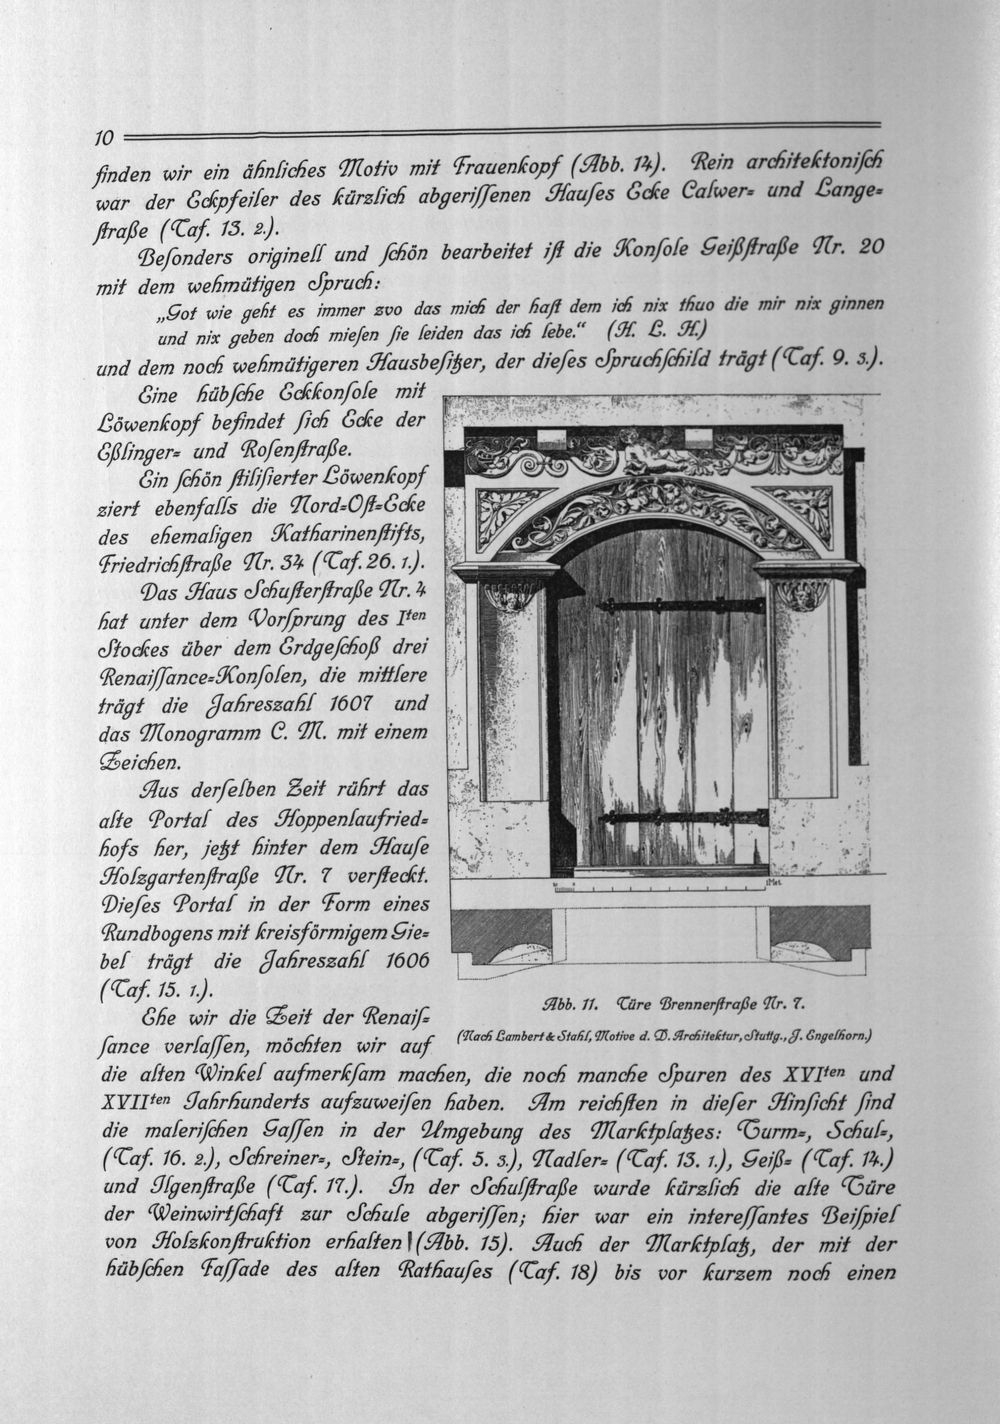 10
finden wir ein ähnliches Motiv mit Frauenkopf (Abb. 14). Rein architektoniſch
war der Eckpfeiler des kürzlich abgeriſſenen Hauſes Ecke Calwer- und Lange-
ſtraße (Taf. 13. 2.).
Beſonders originell und ſchön bearbeitet iſt die Konſole Geißſtraße Nr. 20
mit dem wehmütigen Spruch:
„Got wie geht es immer zvo das mich der haſt dem ich nix thuo die mir nix ginnen
und nix geben doch mieſen ſie leiden das ich lebe.“ (H. L. H.)
und dem noch wehmütigeren Hausbeſitzer, der dieſes Spruchſchild trägt (Taf. 9. 3.).
Eine hübſche Eckkonſole mit
Löwenkopf befindet ſich Ecke der
Eßlinger- und Roſenſtraße.
Ein ſchön ſtiliſierter Löwenkopf
ziert ebenfalls die Nord-Oſt-Ecke
des ehemaligen Katharinenſtifts,
Friedrichſtraße Nr. 34 (Taf. 26. 1.).
Das Haus Schuſterſtraße Nr. 4
hat unter dem Vorſprung des Iten
Stockes über dem Erdgeſchoß drei
Renaiſſance-Konſolen, die mittlere
trägt die Jahreszahl 1607 und
das Monogramm C. M. mit einem
Zeichen.
Aus derſelben Zeit rührt das
alte Portal des Hoppenlaufried-
hofs her, jetzt hinter dem Hauſe
Holzgartenſtraße Nr. 7 verſteckt.
Dieſes Portal in der Form eines
Rundbogens mit kreisförmigem Gie-
bel trägt die Jahreszahl 1606
(Taf. 15. 1.).
Ehe wir die Zeit der Renaiſ-
ſance verlaſſen, möchten wir auf
1 Met.
Abb. 11. Türe Brennerſtraße Nr. 7.
(Nach Lambert & Stahl, Motive d. D. Architektur, Stuttg., J. Engelhorn.)
die alten Winkel aufmerkſam machen, die noch manche Spuren des XVIten und
XVIIten Jahrhunderts aufzuweiſen haben. Am reichſten in dieſer Hinſicht ſind
die maleriſchen Gaſſen in der Umgebung des Marktplatzes: Turm-, Schul-,
(Taf. 16. 2.), Schreiner-, Stein-, (Taf. 5. 3.), Nadler- (Taf. 13. 1.), Geiß- (Taf. 14.)
und Ilgenſtraße (Taf. 17.). In der Schulſtraße wurde kürzlich die alte Türe
der Weinwirtſchaft zur Schule abgeriſſen; hier war ein intereſſantes Beiſpiel
von Holzkonſtruktion erhalten (Abb. 15). Auch der Marktplatz, der mit der
hübſchen Faſſade des alten Rathauſes (Taf. 18) bis vor kurzem noch einen